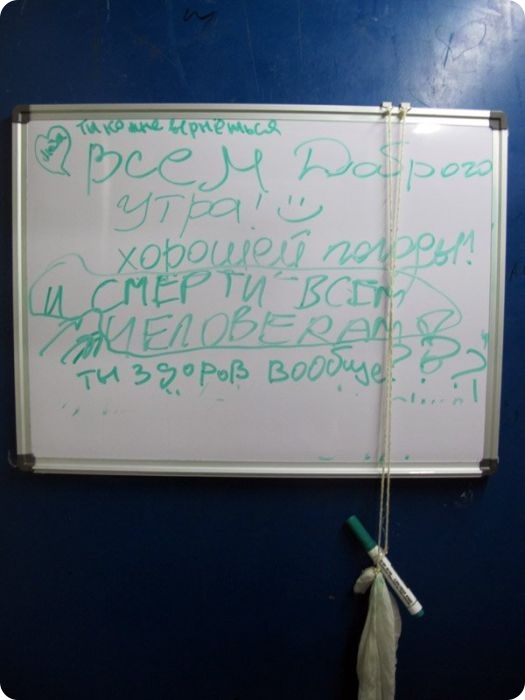 ти ко мне вернёться
Люда
Всем Доброго
утра!
хорошей погоды!
и СМЕРТИ ВСЕМ
ЧЕЛОВЕКАМ
ты здоров вообще???!